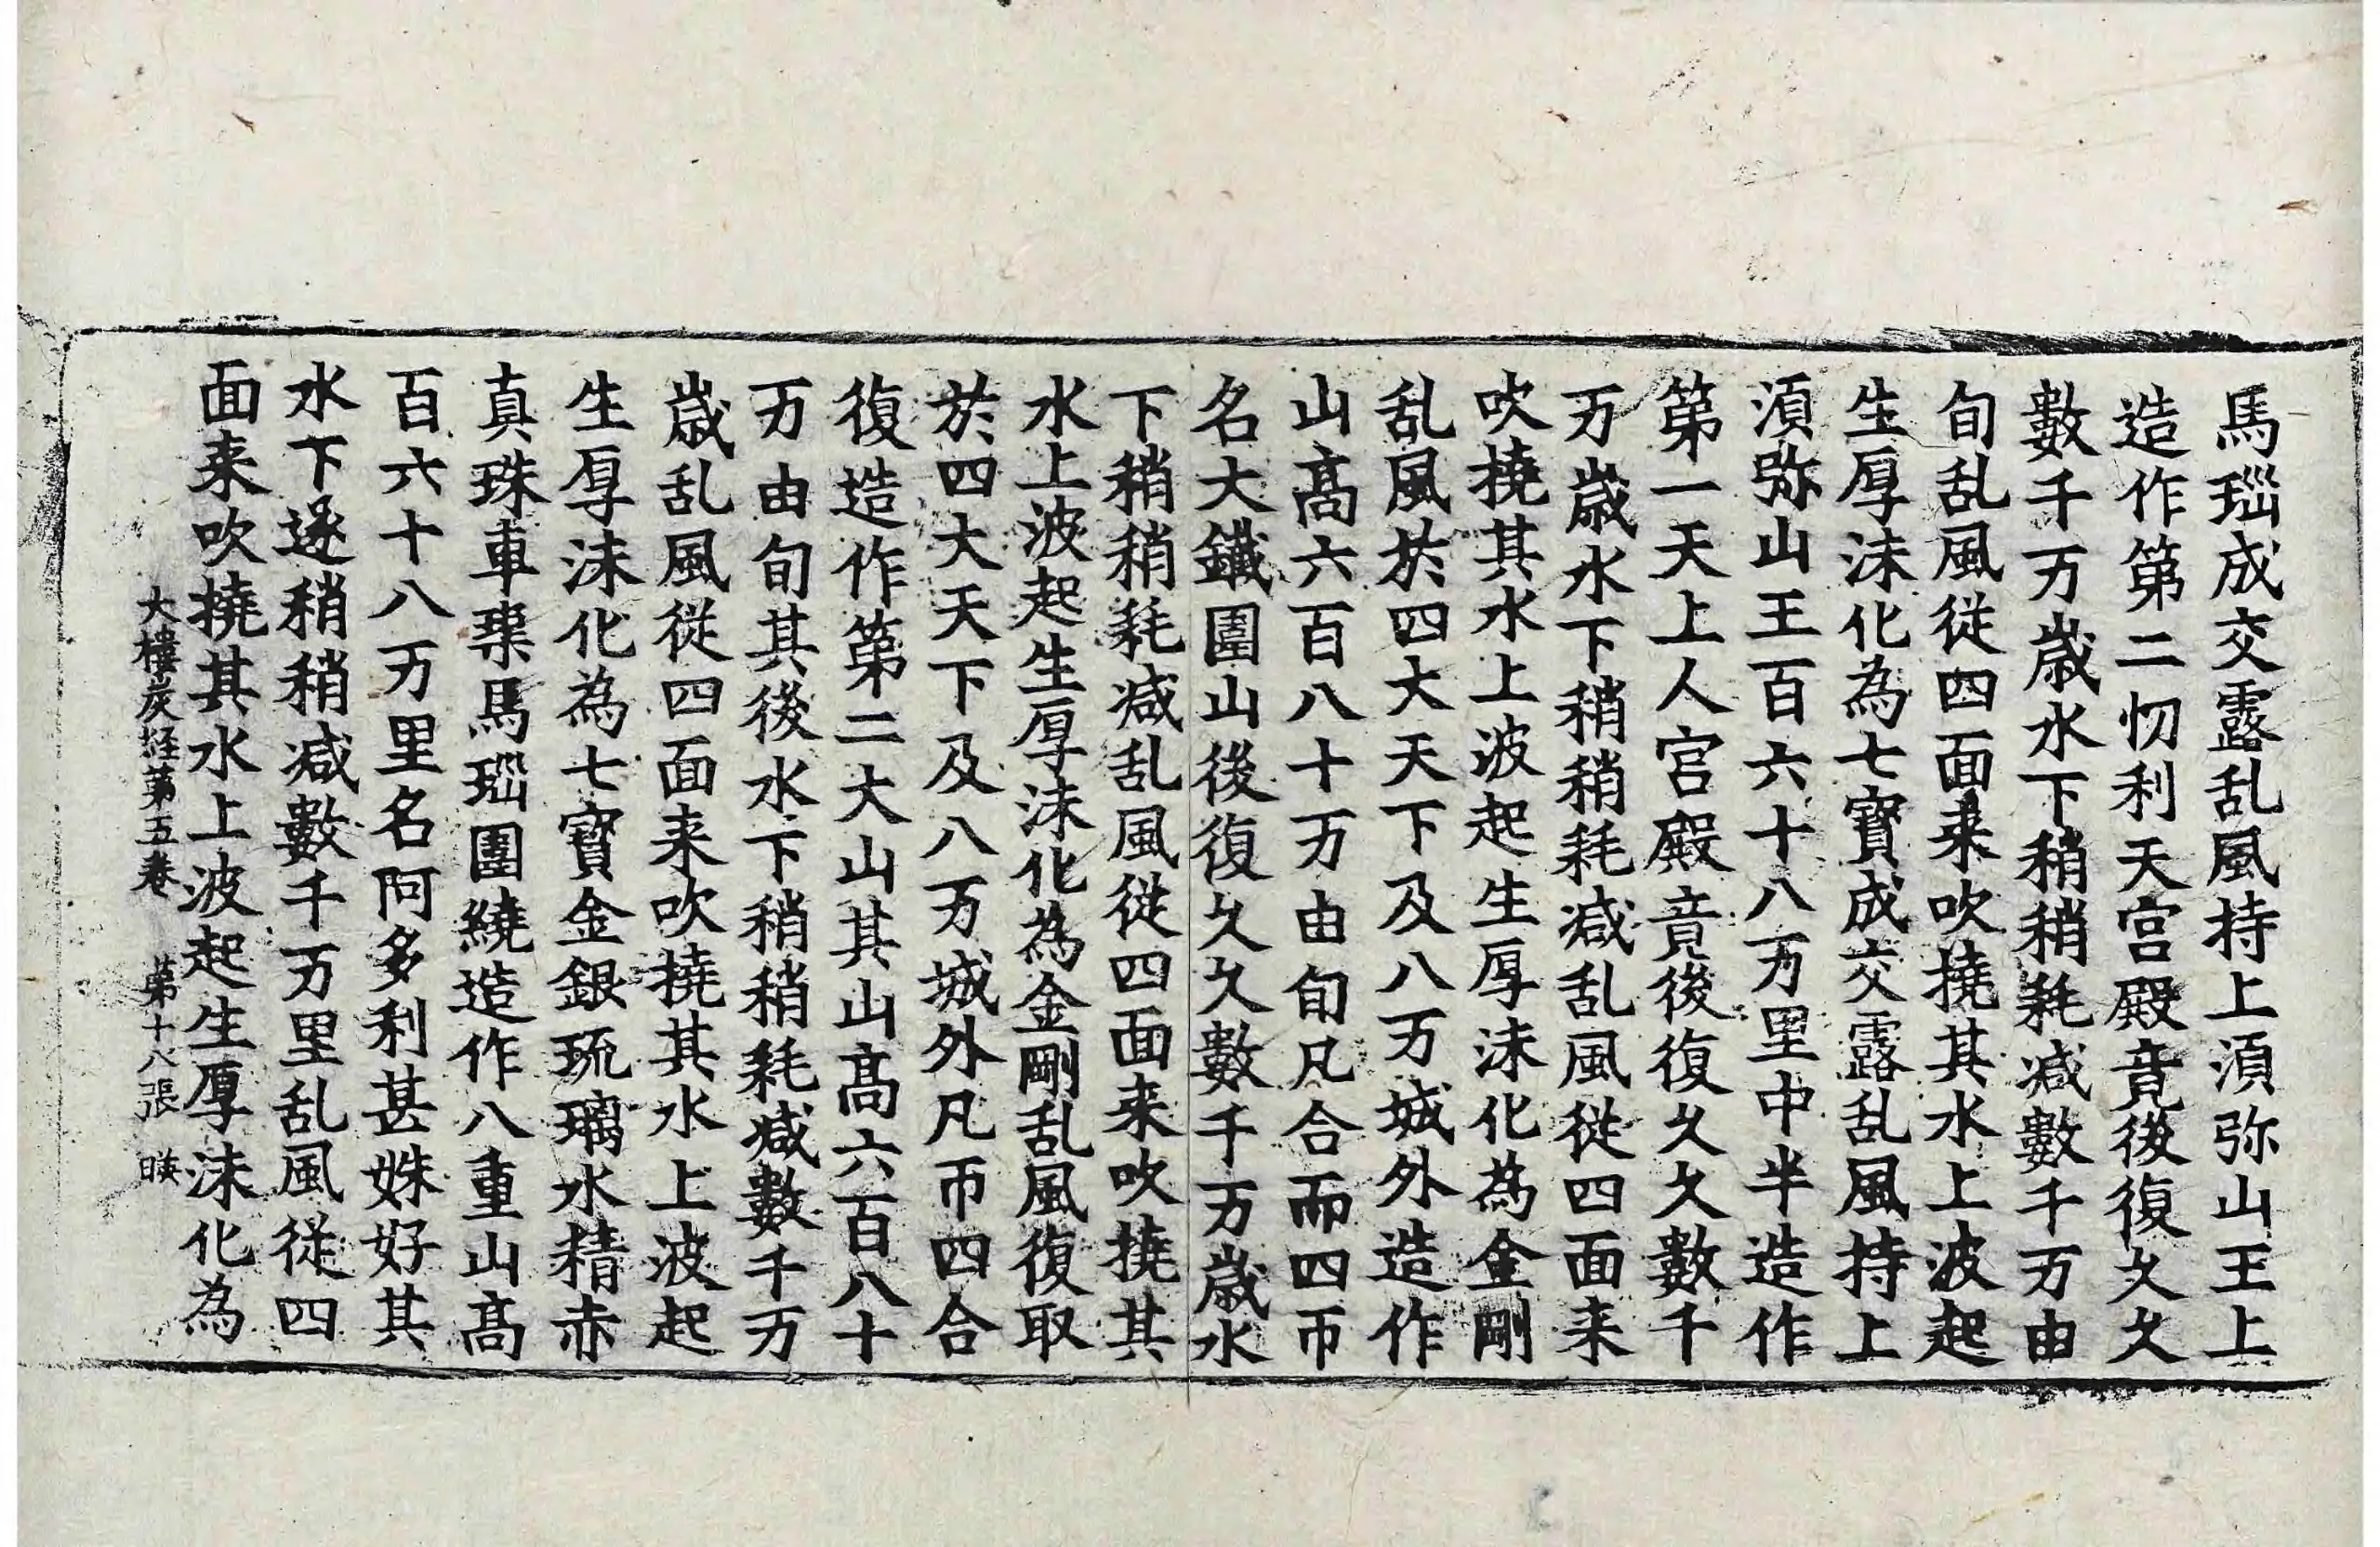 馬瑙成交露乱風持上湏弥山王上
造作第二忉利天宮殿竟後復久久
數千万歲水下稍稍耗减數千万由
旬乱風従四面来吹撓其水上波起
生厚沫化為七寶成交露乱風持上
湏弥山王百六十八万里中半造作
第一天上人宮殿竟後復久久數千
万歲水下稍稍耗减乱風従四面来
吹撓其水上波起生厚沫化為金剛
乱風於四大天下及八万城外造作
山髙六百八十万由旬凡合而四帀
名大鐵圍山後復久久數千万歲水
下稍稍耗减乱風従四面来吹撓其
水上波起生厚沫化為金剛乱風復取
於四大天下及八万城外凡帀四合
復造作第二大山其山髙六百八十
万由旬其後水下稍稍耗减數千万
歲乱風従四面来吹撓其水上波起
生厚沫化為七寶金銀琉璃水精赤
真珠車璖馬瑙圍繞造作八重山髙
百六十八万里名阿多利甚姝好其
水下遂稍稍减數千万里乱風従四
面来吹撓其水上波起生厚沫化為
大樓炭経第五卷 第十八張 暎